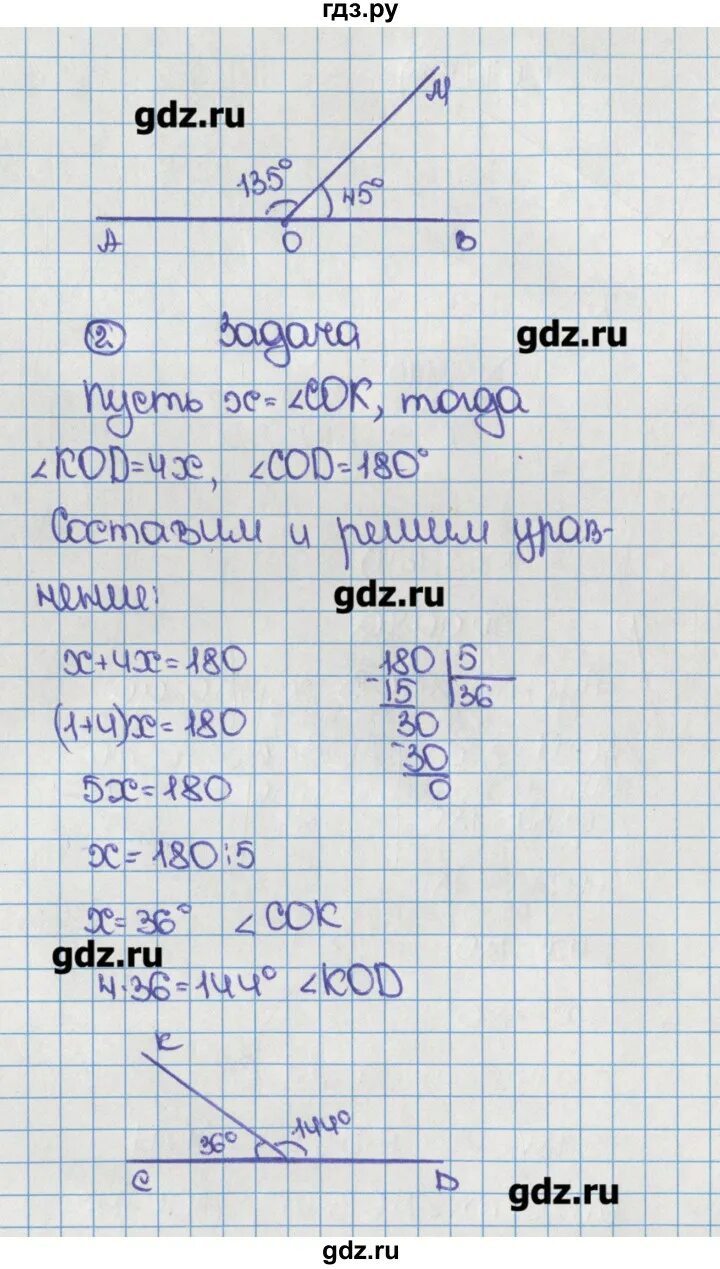 гдз.ру
gdz.ru
M
135° 45°
A O B
2. Задача gdz.ru
Пусть x=∠COK, тогда
∠KOD=4x, ∠COD=180°
Составим и решим урав-
нение:
gdz.ru
x+4x=180
(1+4)x=180
5x=180
x=180:5
x=36° ∠COK
180 5
-15 36
30
-30
0
gdz.ru
4·36=144° ∠KOD
K
36° 144°
C D
gdz.ru
gdz.ru